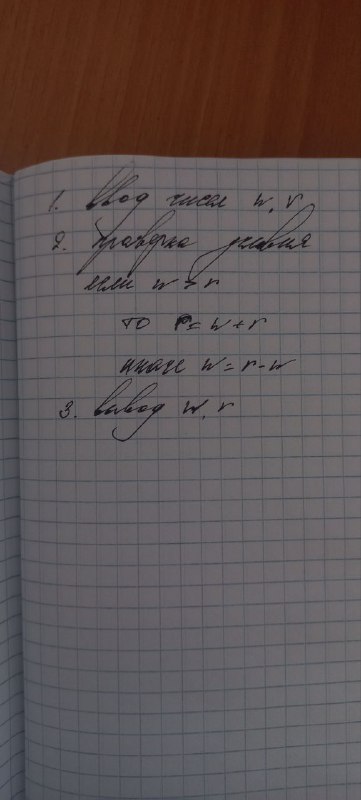 1. Ввод чисел w, r
2. Проверка условия
если w > r
то r = w + r
иначе w = r - w
3. Вывод w, r